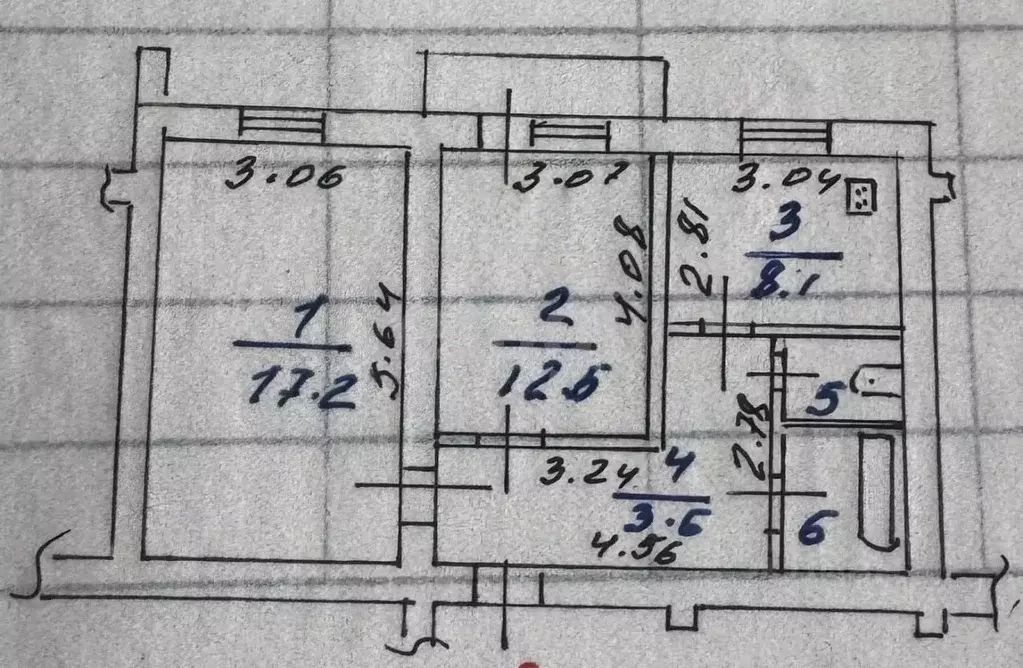 3.06
3.07
3.04
2.81
3
8.1
4.08
1
17.2
5.64
2
12.5
5
2.78
3.24
4
3.6
6
4.56